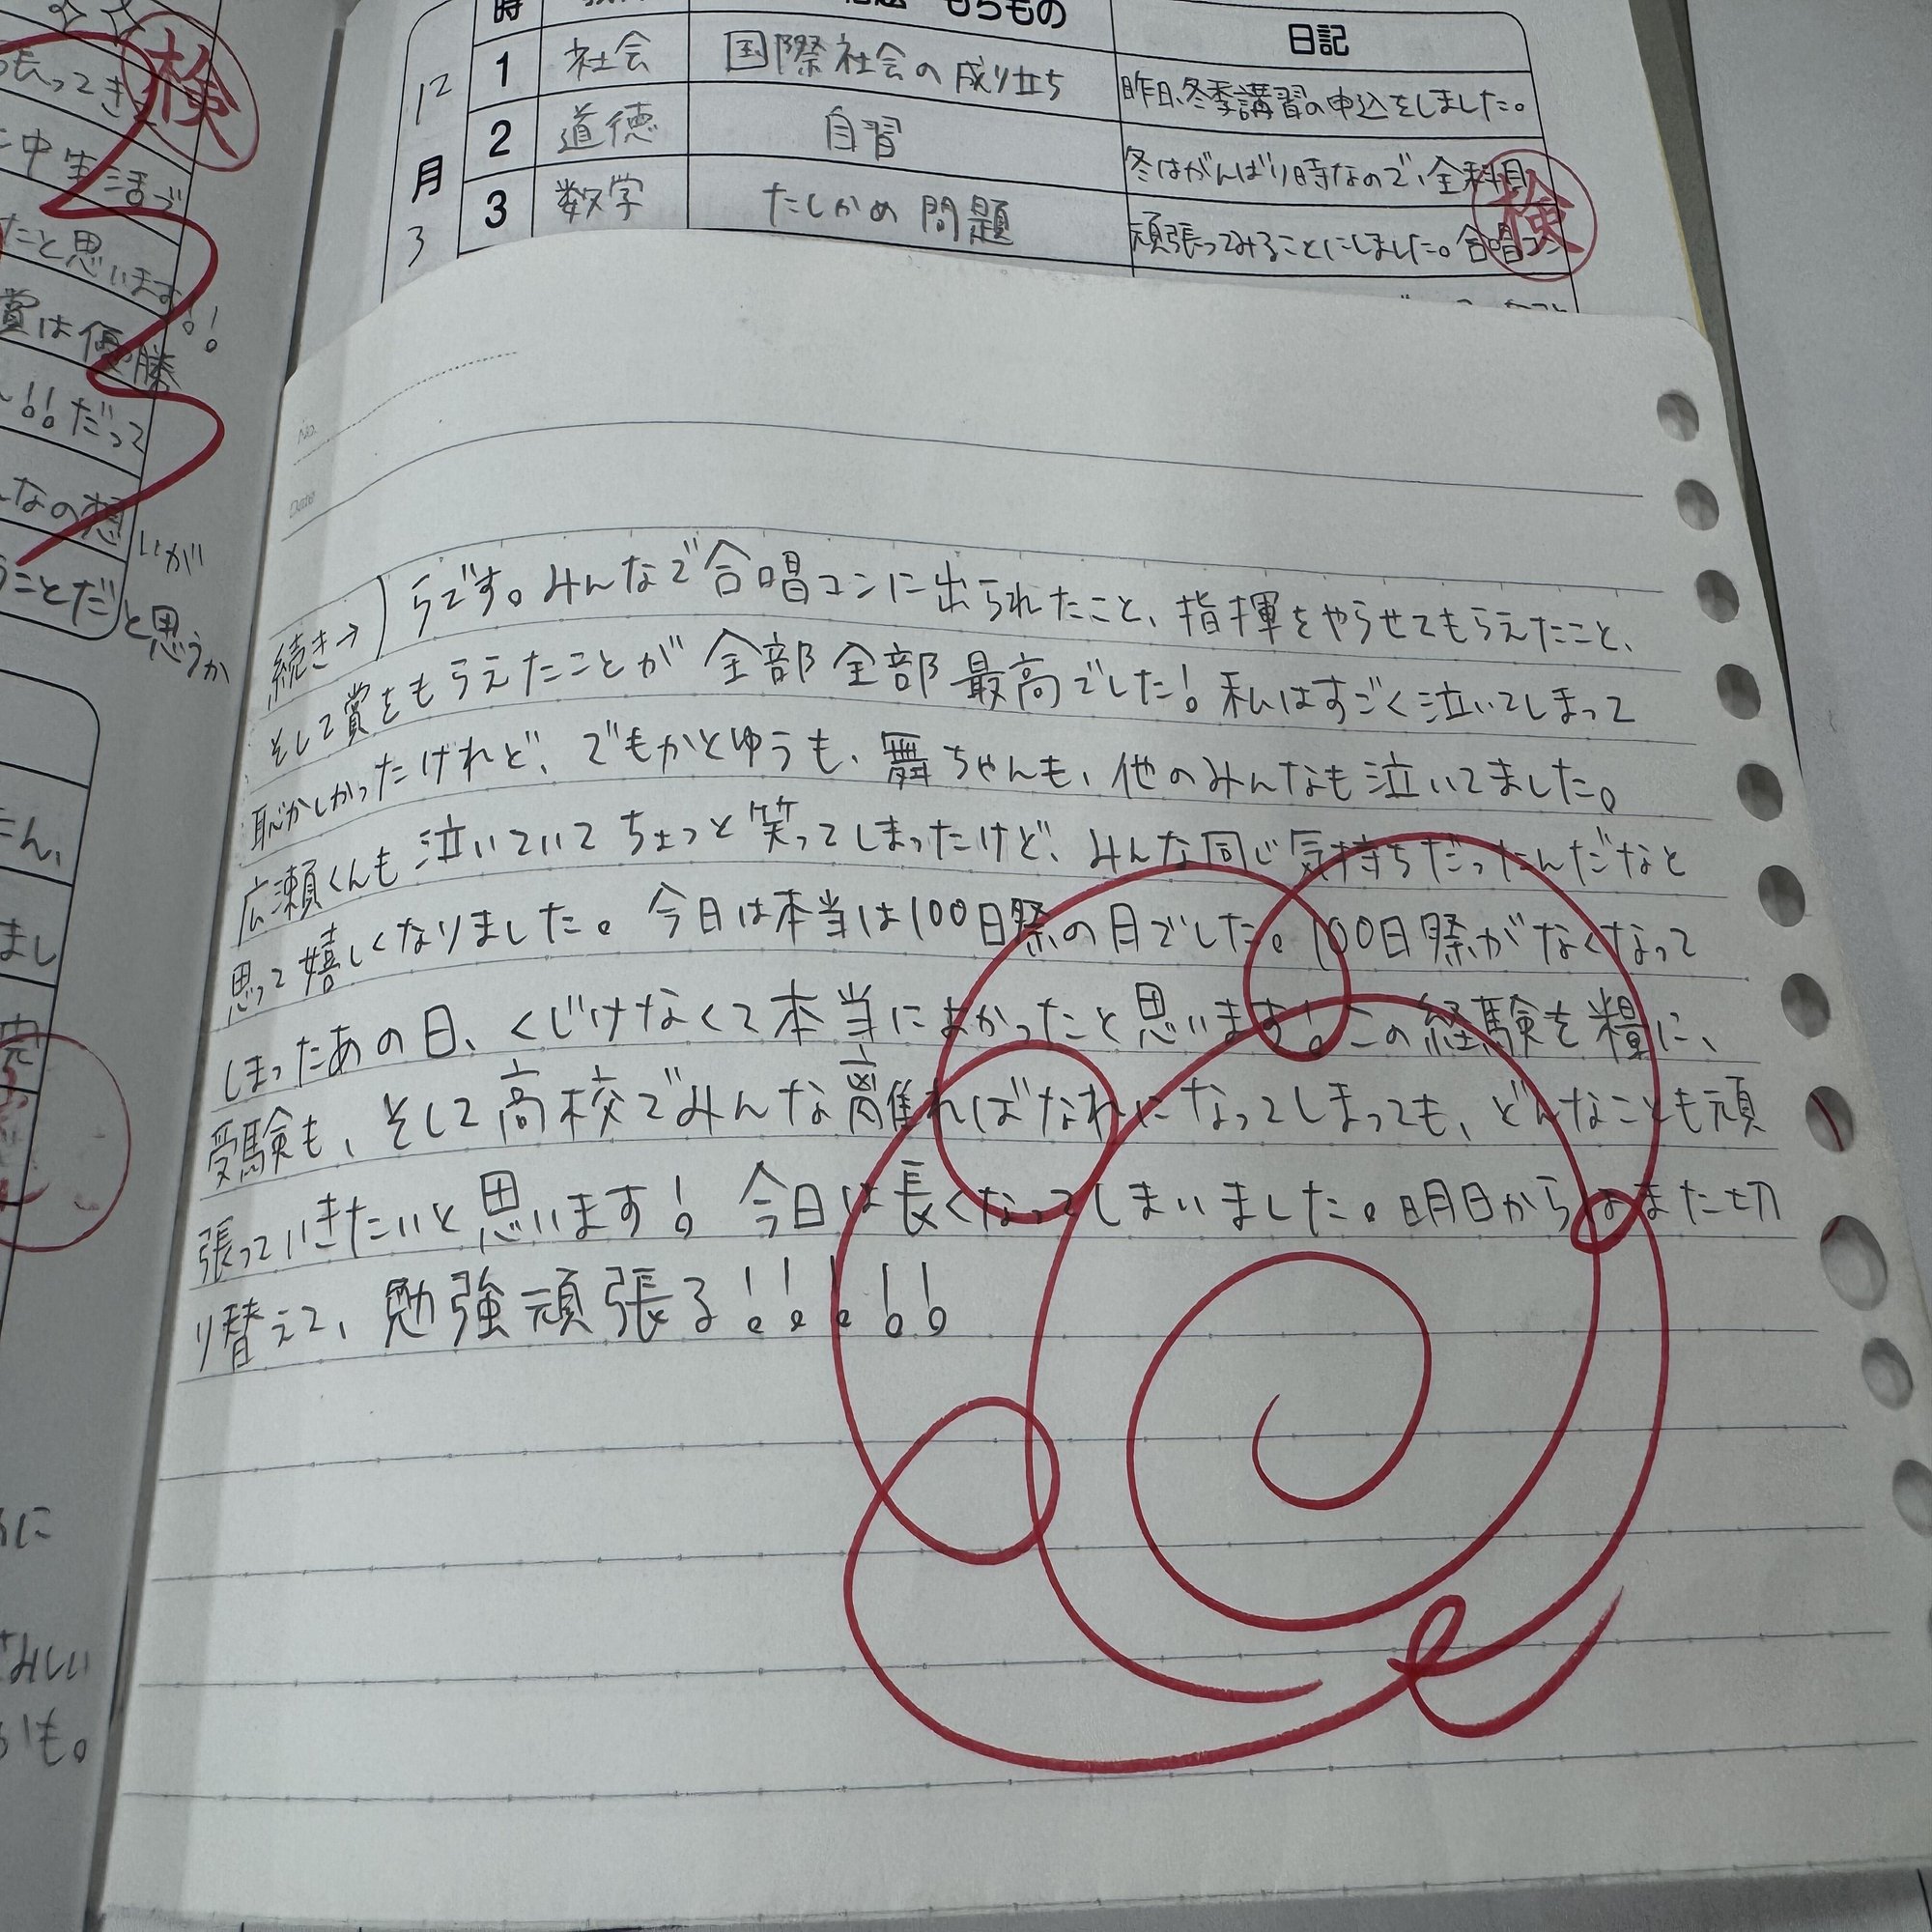 検
中生活で
たと思います!!
賞は優勝
!!だって
なの想いが
ことだと思うか
時
日記
12
月
3
1 社会 国際社会の成り立ち 昨日、冬季講習の申込をしました。
2 道徳 自習 冬はがんばり時なので、全科目
3 数学 たしかめ問題 頑張ってみることにしました。合唱コン
検
No.
Date
続き→) うです。みんなで合唱コンに出られたこと、指揮をやらせてもらえたこと、
そして賞をもらえたことが全部全部最高でした!私はすごく泣いてしまって
恥かしかったけれど、でもかとゆうも、舞ちゃんも、他のみんなも泣いてました。
広瀬くんも泣いていてちょっと笑ってしまったけど、みんな同じ気持ちだったんだなと
思って嬉しくなりました。今日は本当は100日祭の日でした。100日祭がなくなって
しまったあの日、くじけなくて本当によかったと思います!この経験を糧に、
受験も、そして高校でみんな離ればなれになってしまっても、どんなことも頑
張っていきたいと思います!今日は長くなってしまいました。明日からはまた切
り替えて、勉強頑張る!!!!!